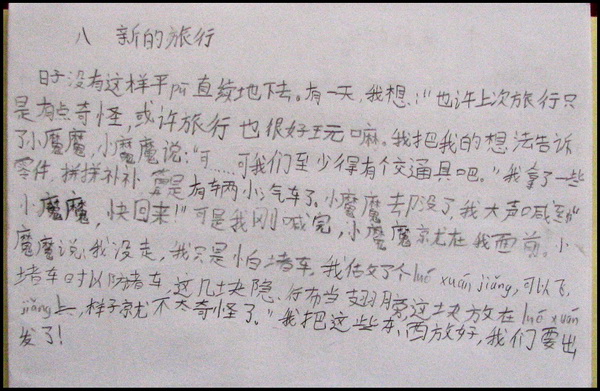 八 新的旅行
日子没有这样平pū直续地下去。有一天,我想:"也许上次旅行只
是有点奇怪,或许旅行也很好玩嘛。我把我的想法告诉
了小魔魔,小魔魔说:"可……可我们至少得有个交通具吧。"我拿了一些
零件,拼拼补补 是有辆小汽车了。小魔魔去 没了,我大声喊到"
小魔魔,快回来!"可是我刚喊完,小魔魔就在我面前。小
魔魔说:我没走,我只是怕堵车,我估文了个luó xuán jiǎng,可以飞,
堵车时以防堵车,这几块隐 布当翅膀,这块放在luó xuán
jiǎng上,样子就不太奇怪了。"我把这些东西放好,我们要出
发了!